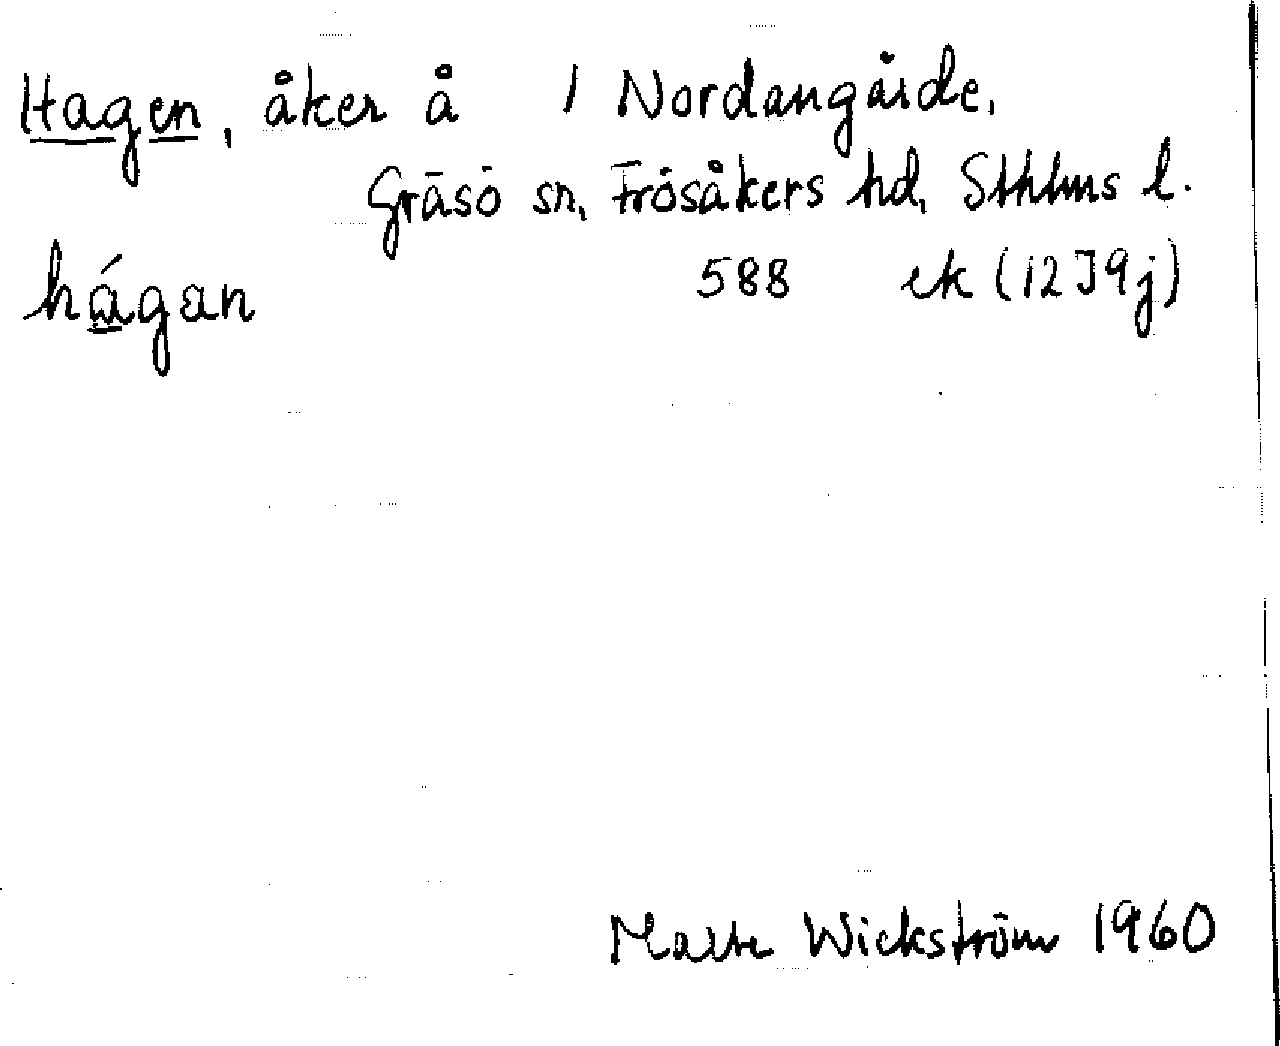 Hagen, åker å 1 Nordangårde,
Gräsö sn, Frösåkers hd, Sthlms l.
hágan 588 ek (12 I 9 j)
Malte Wickström 1960